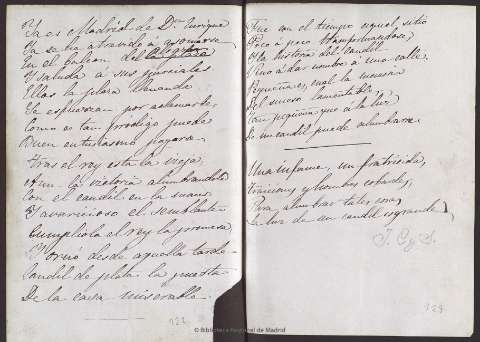 Ya es Madrid de Dn Enrique
Ya se ha atrevido a asomarse
En el balcon del
Y saluda á sus parciales
Ellos la plaza llenando
Se esfuerzan por aclamarle,
Como es tan prodigo puede
Buen entusiasmo pagar.
Tras el rey está la vieja,
Aun la victoria alumbrando
Con el candil en la mano
Y avaricioso el semblante
Cumpliola el rey la promesa
Y ornó desde aquella tarde
Candil de plata la puerta
De la casa miserable.
123
Fue con el tiempo aquel sitio
Poco a poco transformandose,
Y la historia del candil
Vino á dar nombre á una calle,
Pequeña es, cual la memoria
Del suceso lamentable,
Tan pequeña que á la luz
De un candil puede alumbrarse.
Una infame, un fratricida,
Traiciones y hombres cobardes,
Para alumbrar tales cosas
La luz de un candil es grande.
J. C. y S.
© Biblioteca Regional de Madrid